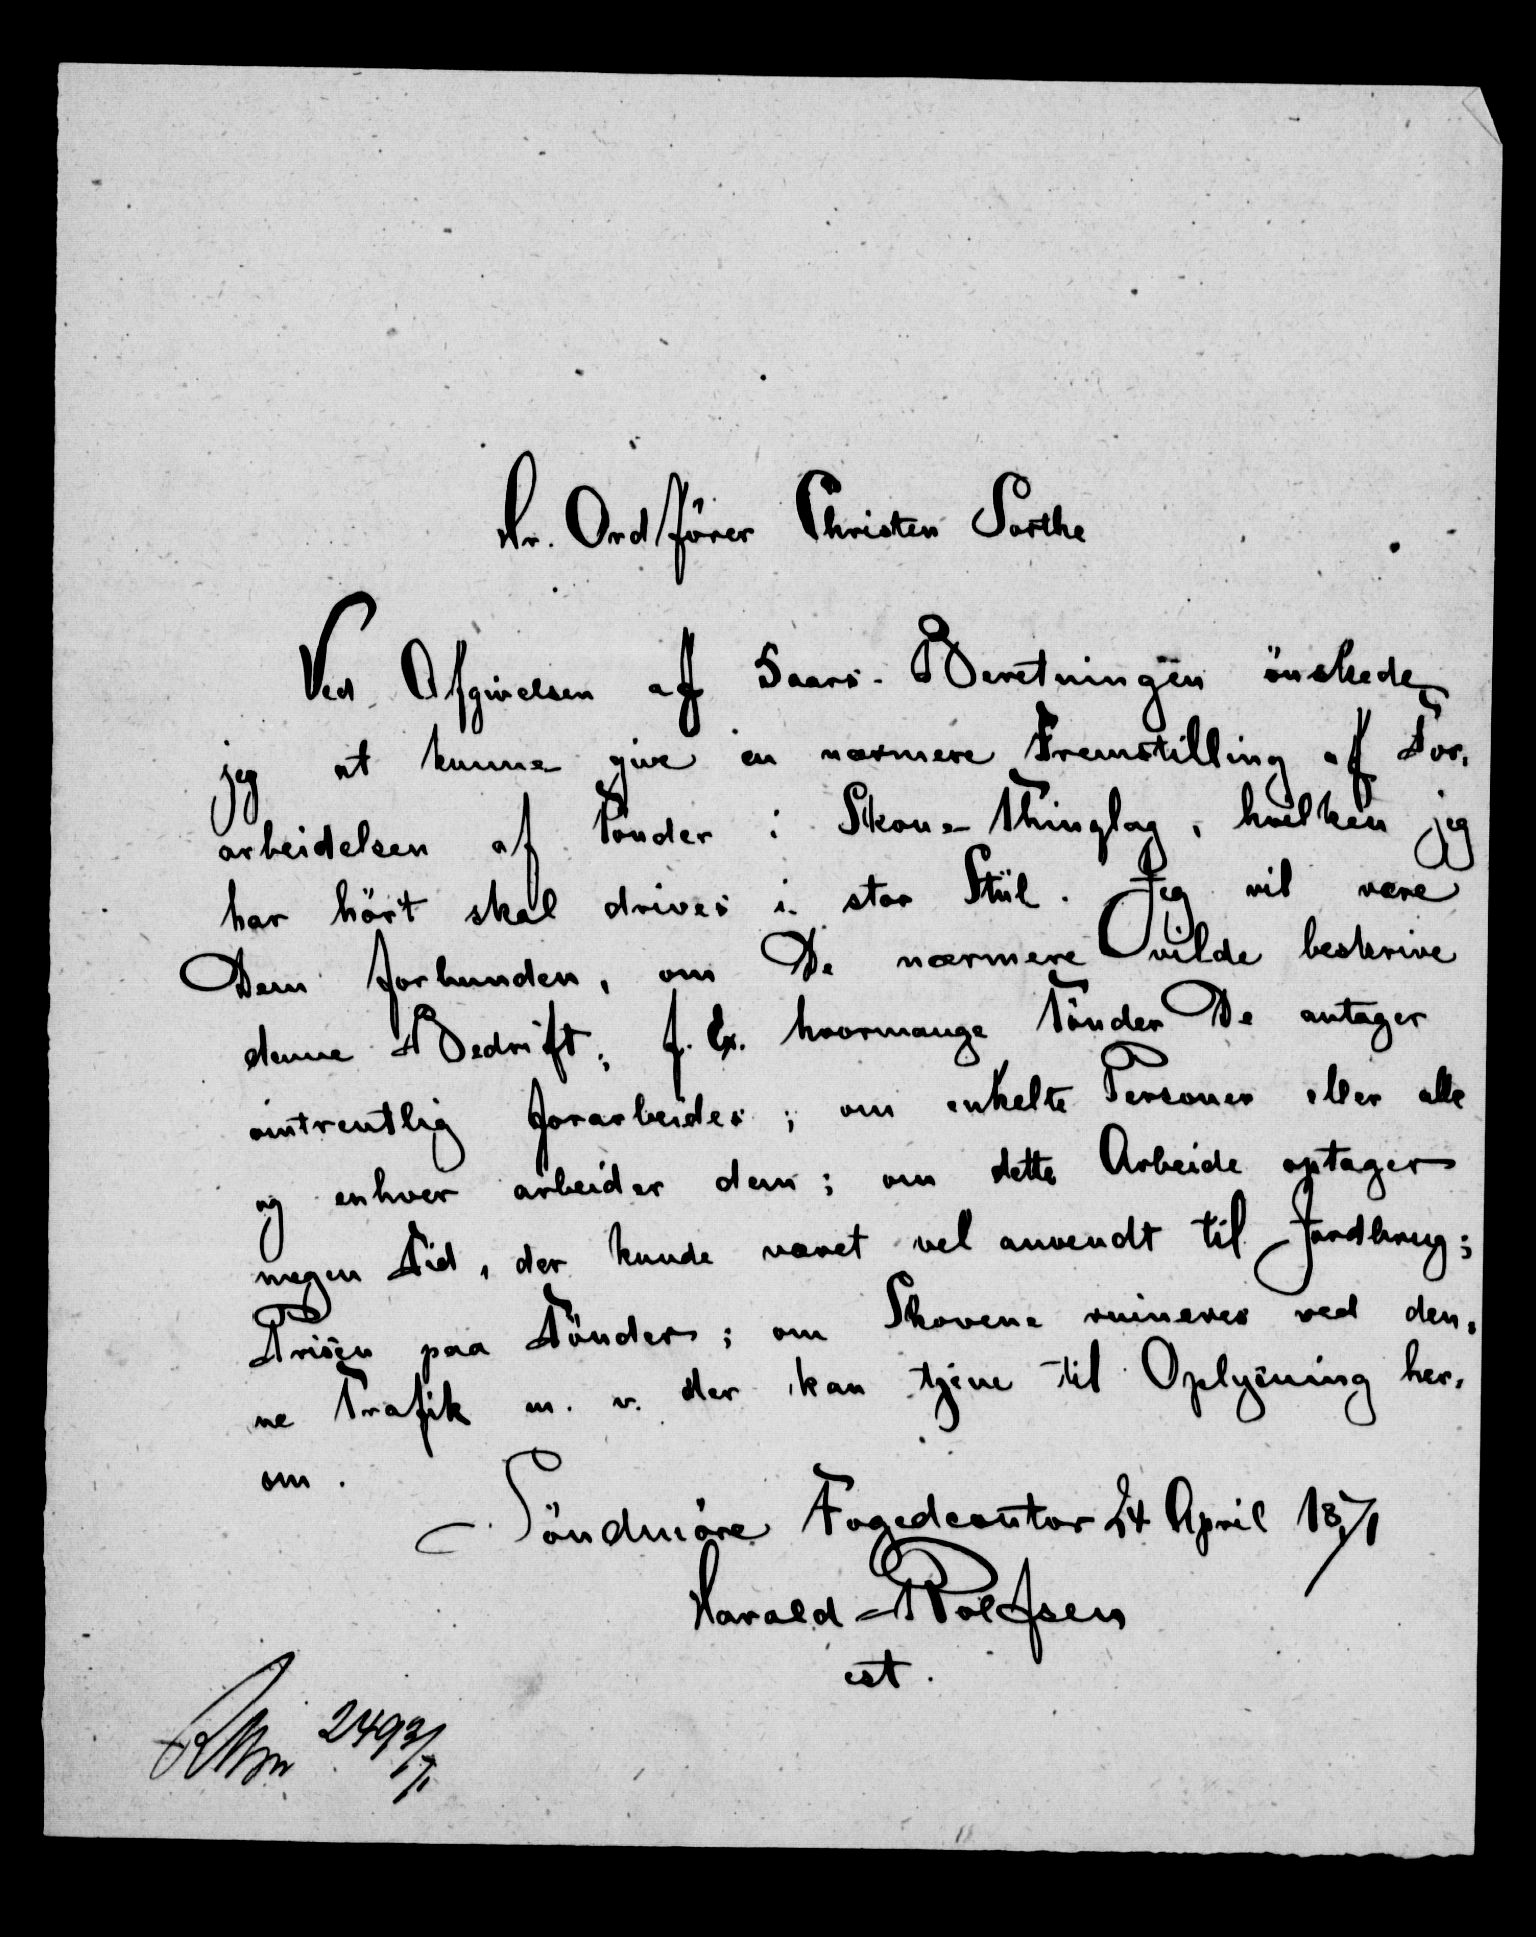 Hr. Ordförer Christen Sorthe
Ved Afgivelsen af 5aars-Beretningen önskede
jeg at kunne give en nærmere Fremstilling af For,
arbeidelsen af Tönder i Skoue Thinglag, hvilken jeg
har hört skal drives i stor Stiil. Jeg vil være
Dem forbunden, om De nærmere vilde beskrive
denne Bedrift, f. Ex. hvormange Tönder De antager
omtrentlig forarbeides; om enkelte Personer eller alle
og enhver arbeider dem; om dette Arbeide optager
megen Tid, der kunde været vel anvendt til Jordbrug;
Prisen paa Tönder; om Skovene ruineres ved den,
ne Trafik m. v. der kan tjene til Oplysning her,
om.
Söndmöre Fogedcontor 24 April 187/1
Harald Rolfsen
cst.
2493/71